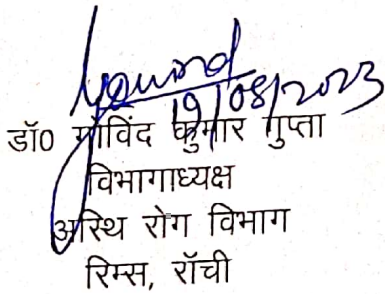 Govind
19/08/2023
डॉ0 गोविंद कुमार गुप्ता
विभागाध्यक्ष
अस्थि रोग विभाग
रिम्स, रॉची